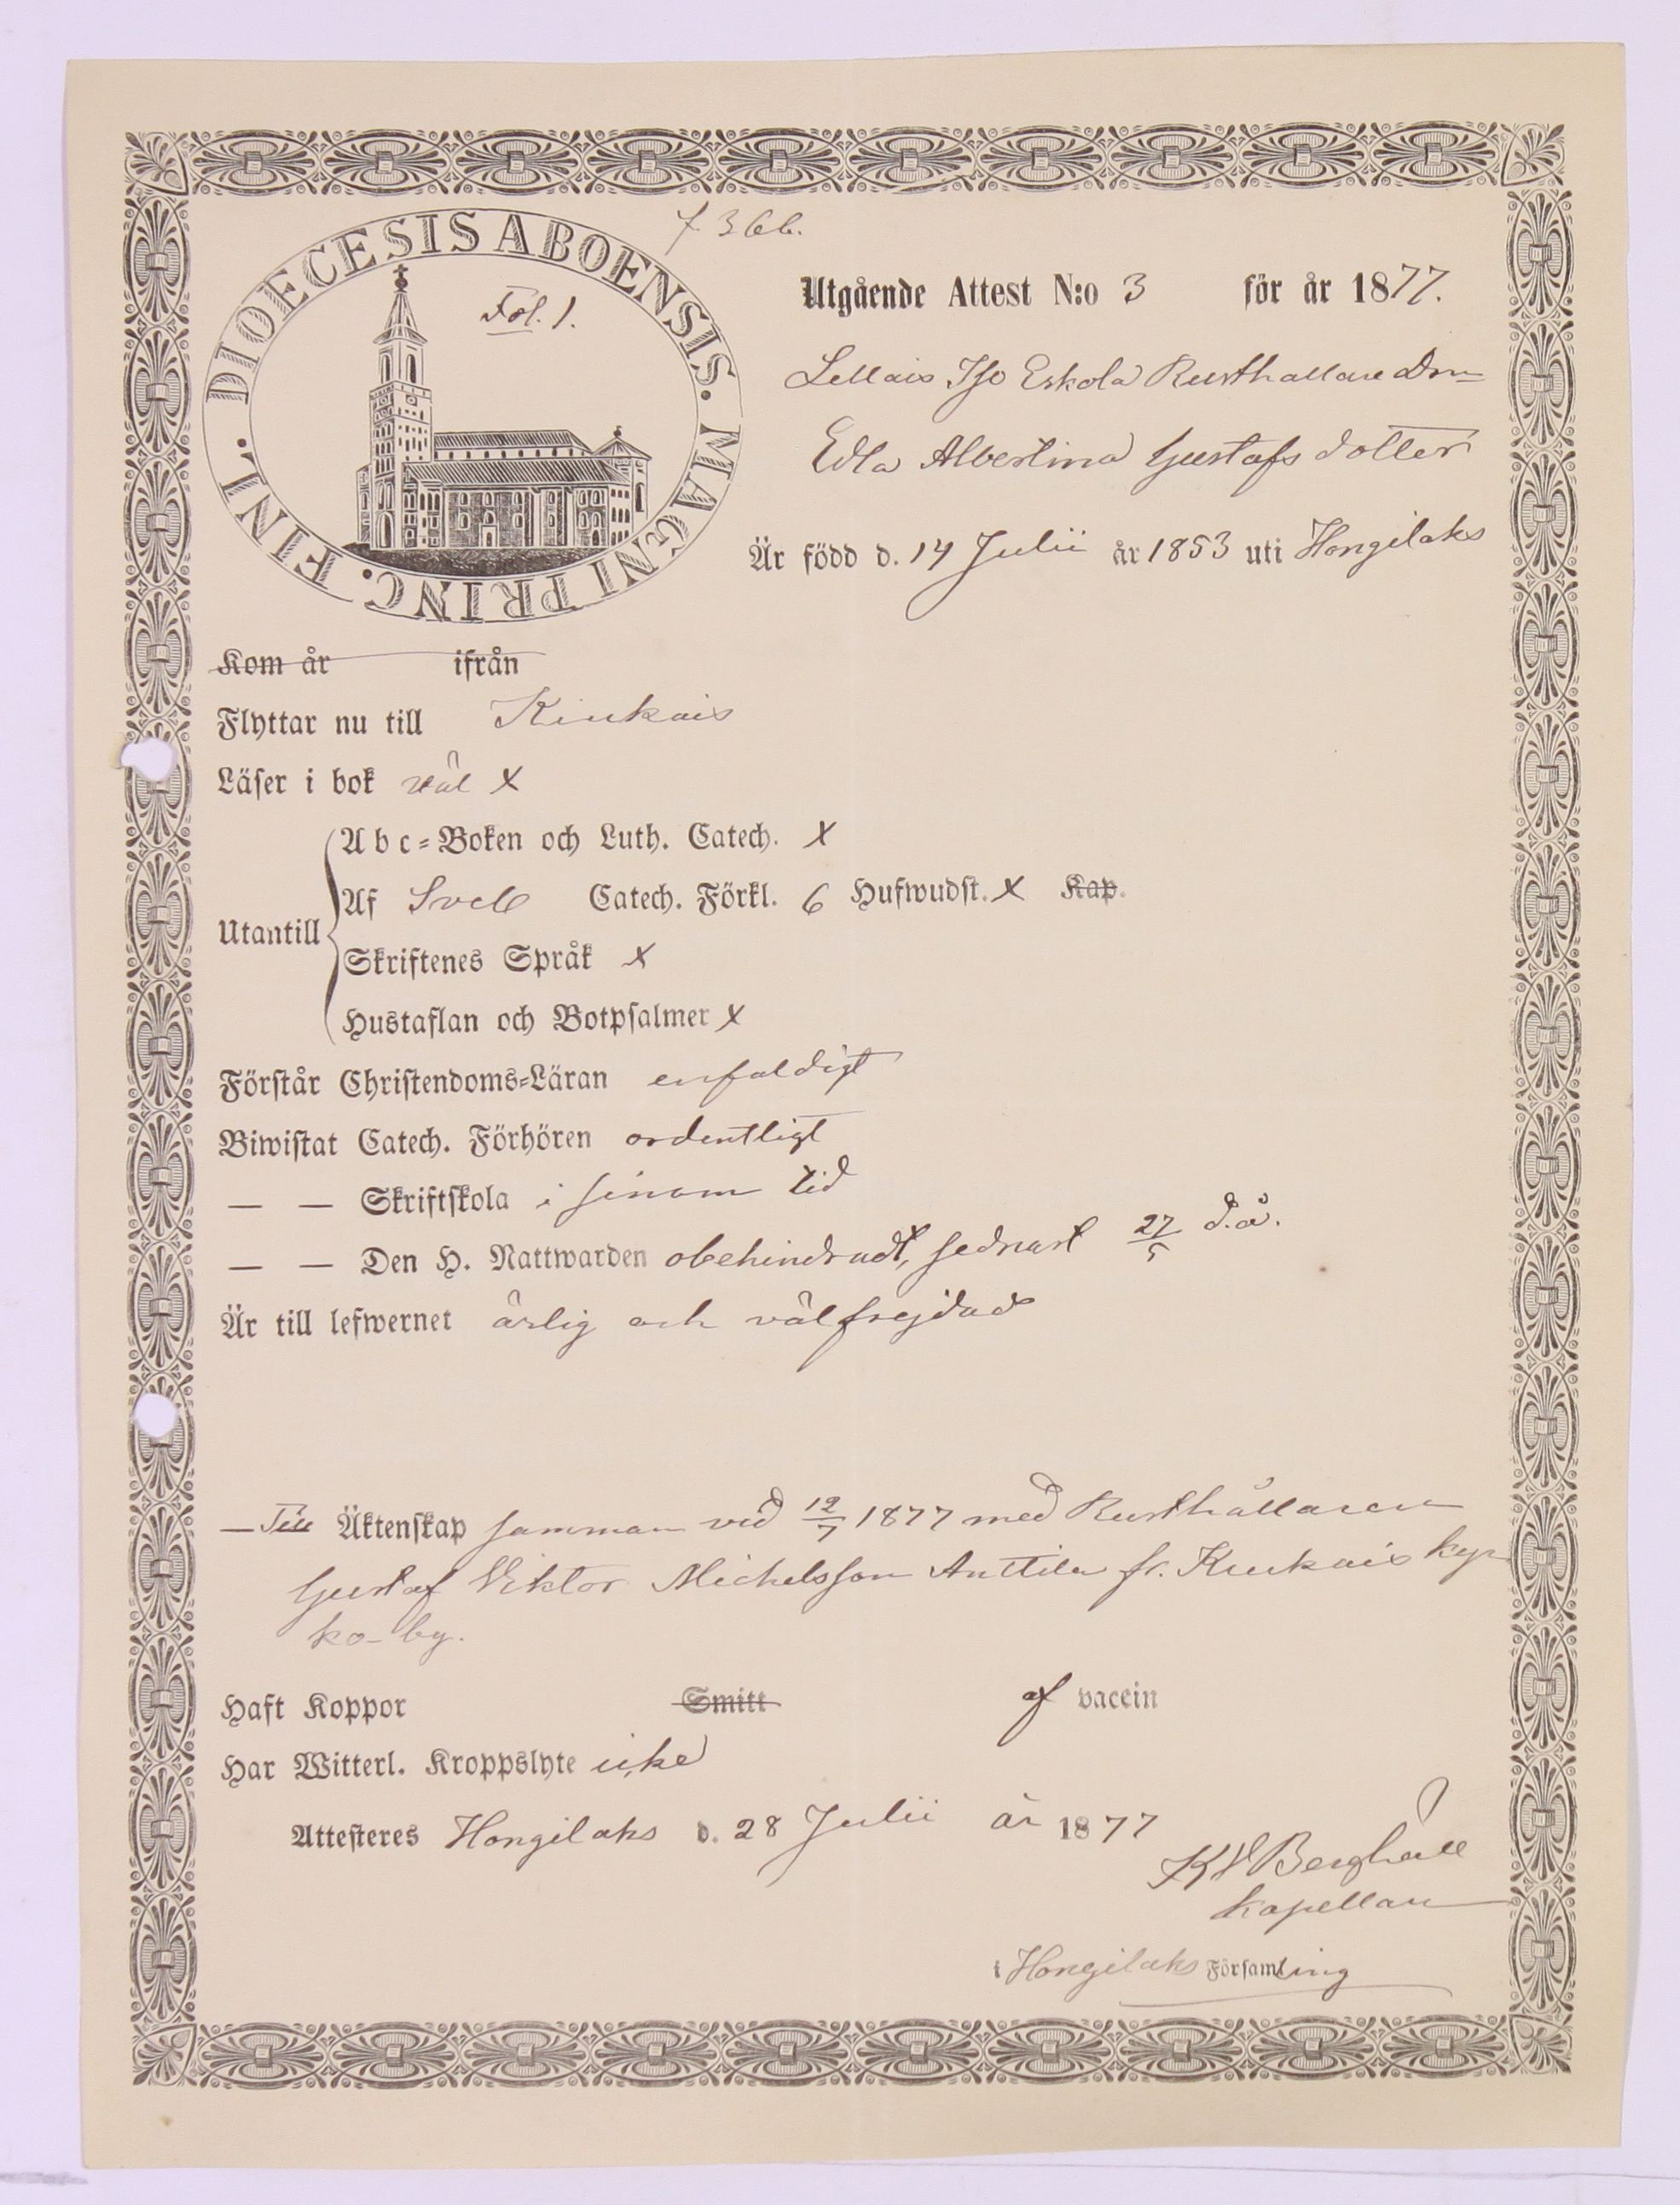 f 366.
DIOECESIS ABOENSIS. MAGNI PRINC. FINL.
Fol. 1.
Utgående Attest N:o 3 för år 1877.
Lellais Iso Eskola Rusthållare Dn
Edla Albertina Gustafs dotter
Är född d. 14 Julii år 1853 uti Hongilaks
Kom år ifrån
Flyttar nu till Kiukais
Läser i bok väl x
Utantill
Abc-Boken och Luth. Catech. x
Af Sveb Catech. Förkl. 6 Hufwudst. x Kap.
Skriftenes Språk x
Hustaflan och Botpsalmer x
Förstår Christendoms-Läran enfaldigt
Biwistat Catech. Förhören ordentligt
— — Skriftskola i sinom tid
— — Den H. Nattwarden obehindradt, sednast 27/5 d.å.
Är till lefwernet ärlig och välfrejdad
— Till Äktenskap samman vid 12/7 1877 med Rusthållaren
Gustaf Viktor Michelsson Anttila fr. Kiukais kyr
ko-by.
Haft Koppor Smitt af vaccin
Har Witterl. Kroppslyte icke
Attesteres Hongilaks d. 28 Julii år 1877
KV Berghäll
Kapellan
i Hongilaks Församling